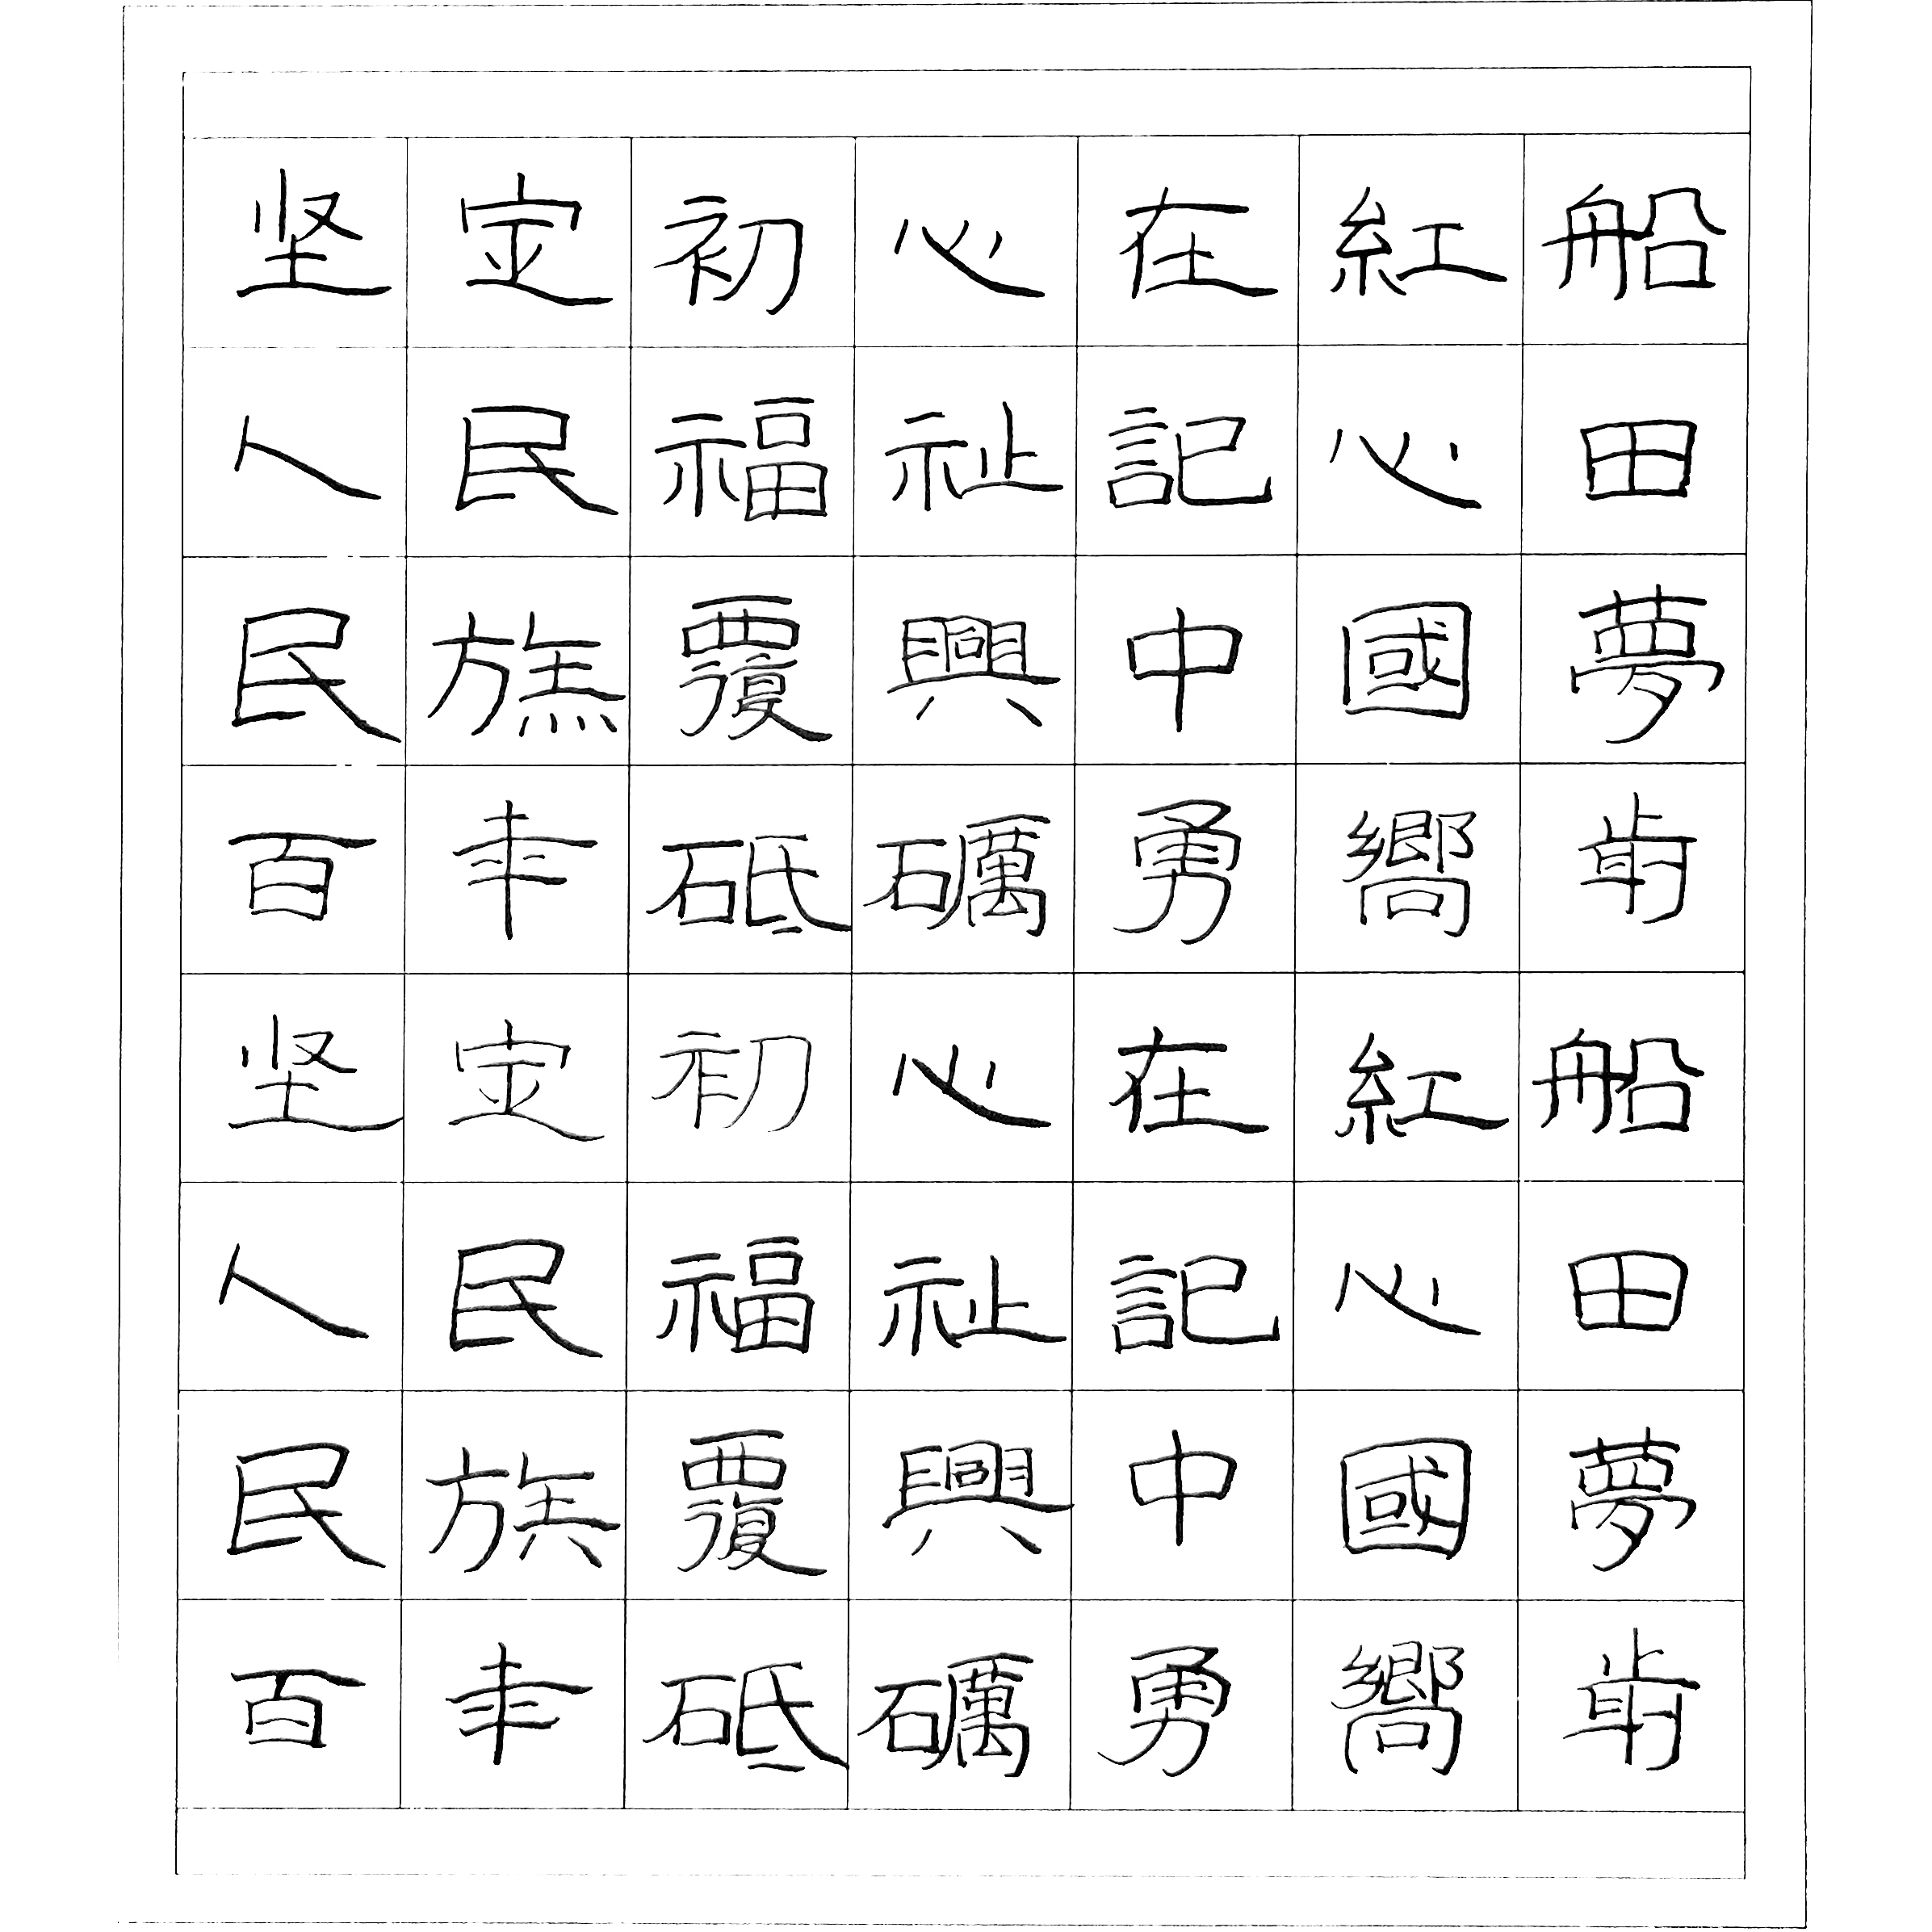 坚定初心在紅船
人民福祉記心田
民族覆興中國夢
百年砥礪勇嚮前
坚定初心在紅船
人民福祉記心田
民族覆興中國夢
百年砥礪勇嚮前